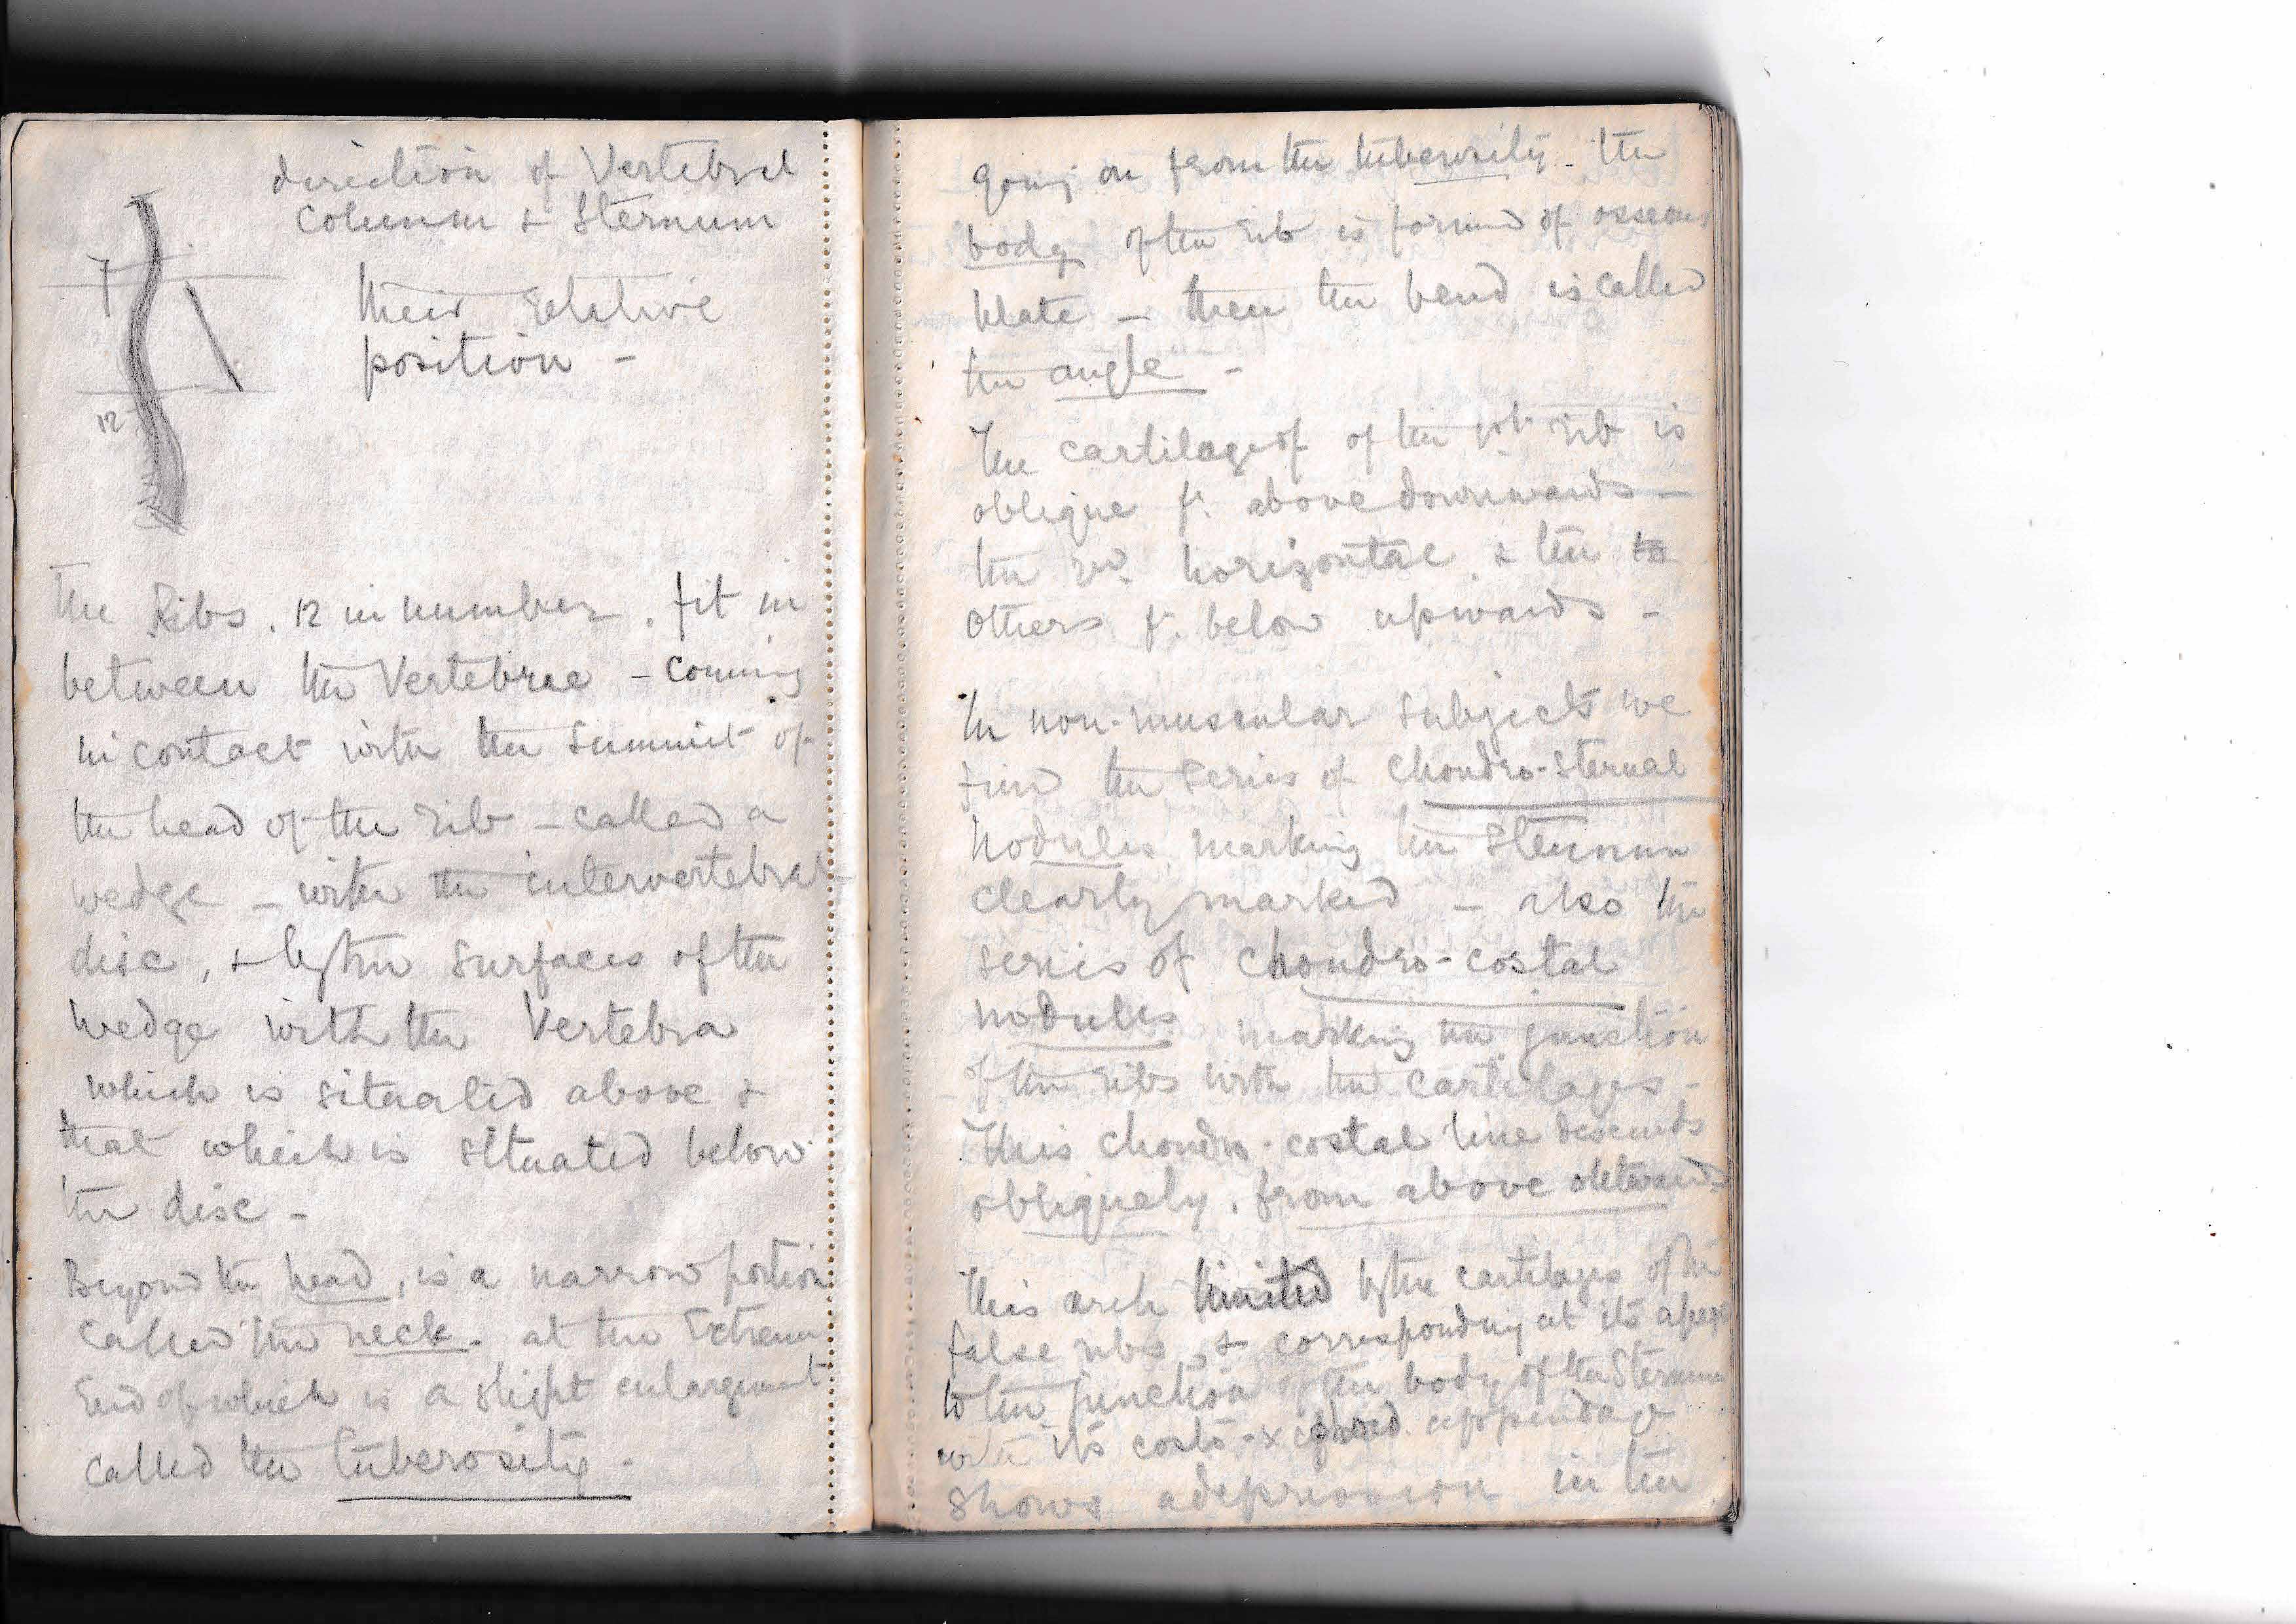 direction of Vertebral
Column & Sternum
their relative
position -
7
12
The Ribs . 12 in number . fit in
between the Vertebrae - coming
in contact with the summit of
the head of the rib - called a
wedge - with the intervertebral
disc , & by the surfaces of the
wedge with the Vertebra
which is situated above &
that which is situated below
the disc -
Beyond the head , is a narrow portion
called the neck - at the Extreme
End of which is a slight enlargement
called the tuberosity -
going on from the tuberosity - the
body of the rib is formed of osseous
plate - then the bend is called
the angle -
The cartilage of of the 1st rib is
oblique fr. above downwards -
the 2nd. horizontal & the to
others fr. below upwards -
In non-muscular subjects we
find the series of chondro-sternal
nodules marking the Sternum
clearly marked - also the
series of chondro-costal
nodules marking the junction
of the ribs with the cartilages -
This chondro-costal line descends
obliquely . from above outwards
This arch limited by the cartilages of the
false ribs , & corresponding at its apex
to the junction of the body of the Sternum
with its costo-xiphoid appendage
shows a depression in the